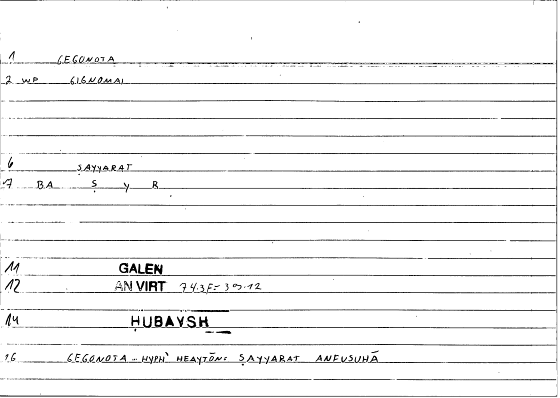 1 GEGONOTA
2 WP GIGNOMAI
6 ṢAYYARAT
7 BA Ṣ Y R
11 GALEN
12 AN VIRT 74.3F=
14 ḤUBAYSH
16 GEGONOTA - HYPH' HEAYTŌN: ṢAYYARAT ANFUSUHĀ